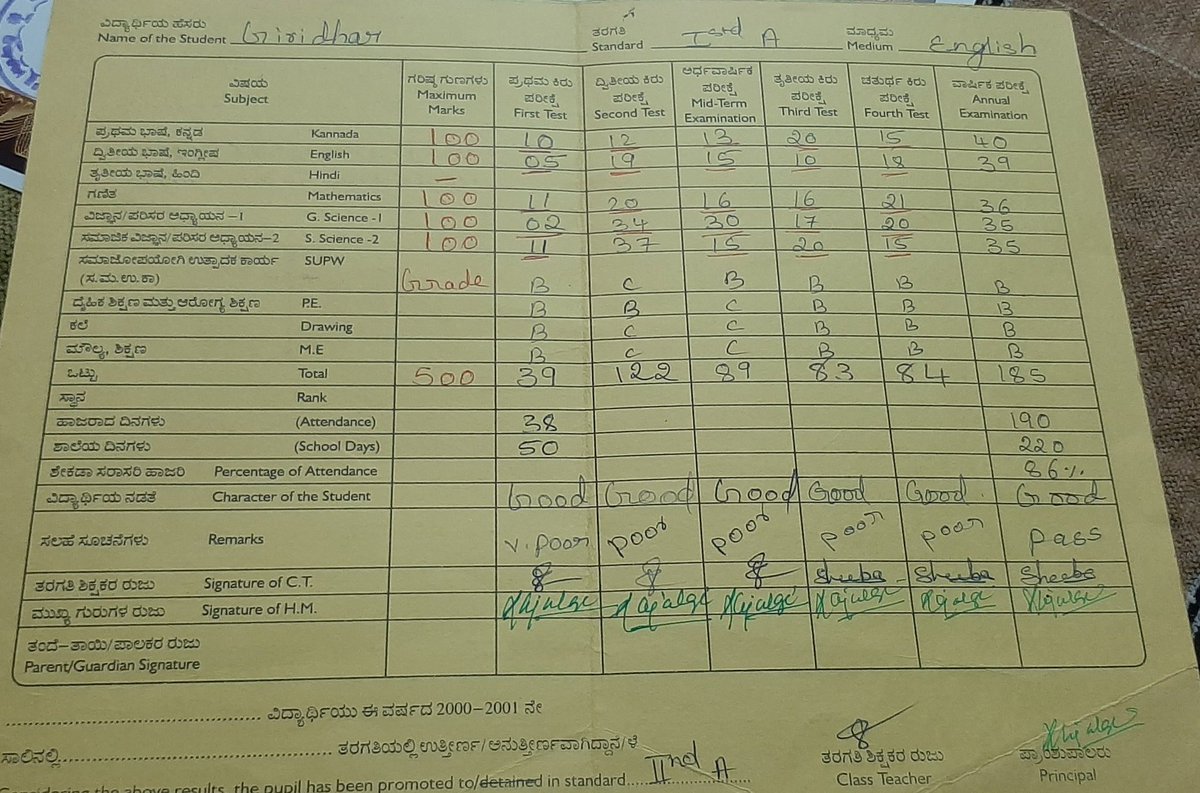 ವಿದ್ಯಾರ್ಥಿಯ ಹೆಸರು ತರಗತಿ ಮಾಧ್ಯಮ
Name of the Student Giridhar Standard Ist A Medium English
ವಿಷಯ Subject ಗರಿಷ್ಠ ಗುಣಗಳು Maximum Marks ಪ್ರಥಮ ಕಿರು ಪರೀಕ್ಷೆ First Test ದ್ವಿತೀಯ ಕಿರು ಪರೀಕ್ಷೆ Second Test ಅರ್ಧವಾರ್ಷಿಕ ಪರೀಕ್ಷೆ Mid-Term Examination ತೃತೀಯ ಕಿರು ಪರೀಕ್ಷೆ Third Test ಚತುರ್ಥ ಕಿರು ಪರೀಕ್ಷೆ Fourth Test ವಾರ್ಷಿಕ ಪರೀಕ್ಷೆ Annual Examination
ಪ್ರಥಮ ಭಾಷೆ, ಕನ್ನಡ Kannada 100 10 12 13 20 15 40
ದ್ವಿತೀಯ ಭಾಷೆ, ಇಂಗ್ಲೀಷ English 100 05 19 15 10 18 39
ತೃತೀಯ ಭಾಷೆ, ಹಿಂದಿ Hindi —
ಗಣಿತ Mathematics 100 11 20 16 16 21 36
ವಿಜ್ಞಾನ/ಪರಿಸರ ಅಧ್ಯಾಯನ -1 G. Science -1 100 02 34 30 17 20 35
ಸಮಾಜಿಕ ವಿಜ್ಞಾನ/ಪರಿಸರ ಅಧ್ಯಾಯನ-2 S. Science -2 100 11 37 15 20 15 35
ಸಮಾಜೋಪಯೋಗಿ ಉತ್ಪಾದಕ ಕಾರ್ಯ SUPW
(ಸ.ಮ.ಉ.ಕಾ) Grade B C B B B B
ದೈಹಿಕ ಶಿಕ್ಷಣ ಮತ್ತು ಆರೋಗ್ಯ ಶಿಕ್ಷಣ P.E. B B C B B B
ಕಲೆ Drawing B C C B B B
ಮೌಲ್ಯ, ಶಿಕ್ಷಣ M.E B C C B B B
ಒಟ್ಟು Total 500 39 122 89 83 84 185
ಸ್ಥಾನ Rank
ಹಾಜರಾದ ದಿನಗಳು (Attendance) 38 190
ಶಾಲೆಯ ದಿನಗಳು (School Days) 50 220
ಶೇಕಡಾ ಸರಾಸರಿ ಹಾಜರಿ Percentage of Attendance 86%
ವಿದ್ಯಾರ್ಥಿಯ ನಡತೆ Character of the Student Good Good Good Good Good. Good
ಸಲಹೆ ಸೂಚನೆಗಳು Remarks v. poor poor poor poor poor pass
ತರಗತಿ ಶಿಕ್ಷಕರ ರುಜು Signature of C.T. Sheeba Sheeba Sheeba
ಮುಖ್ಯ ಗುರುಗಳ ರುಜು Signature of H.M.
ತಂದೆ-ತಾಯಿ/ಪಾಲಕರ ರುಜು
Parent/Guardian Signature
ವಿದ್ಯಾರ್ಥಿಯು ಈ ವರ್ಷದ 2000-2001 ನೇ
ಸಾಲಿನಲ್ಲಿ ತರಗತಿಯಲ್ಲಿ ಉತ್ತೀರ್ಣ/ಅನುತ್ತೀರ್ಣವಾಗಿದ್ದಾನೆ/ಳೆ ತರಗತಿ ಶಿಕ್ಷಕರ ರುಜು ಪ್ರಾಂಶುಪಾಲರು
Class Teacher Principal
Considering the above results, the pupil has been promoted to/detained in standard IInd A